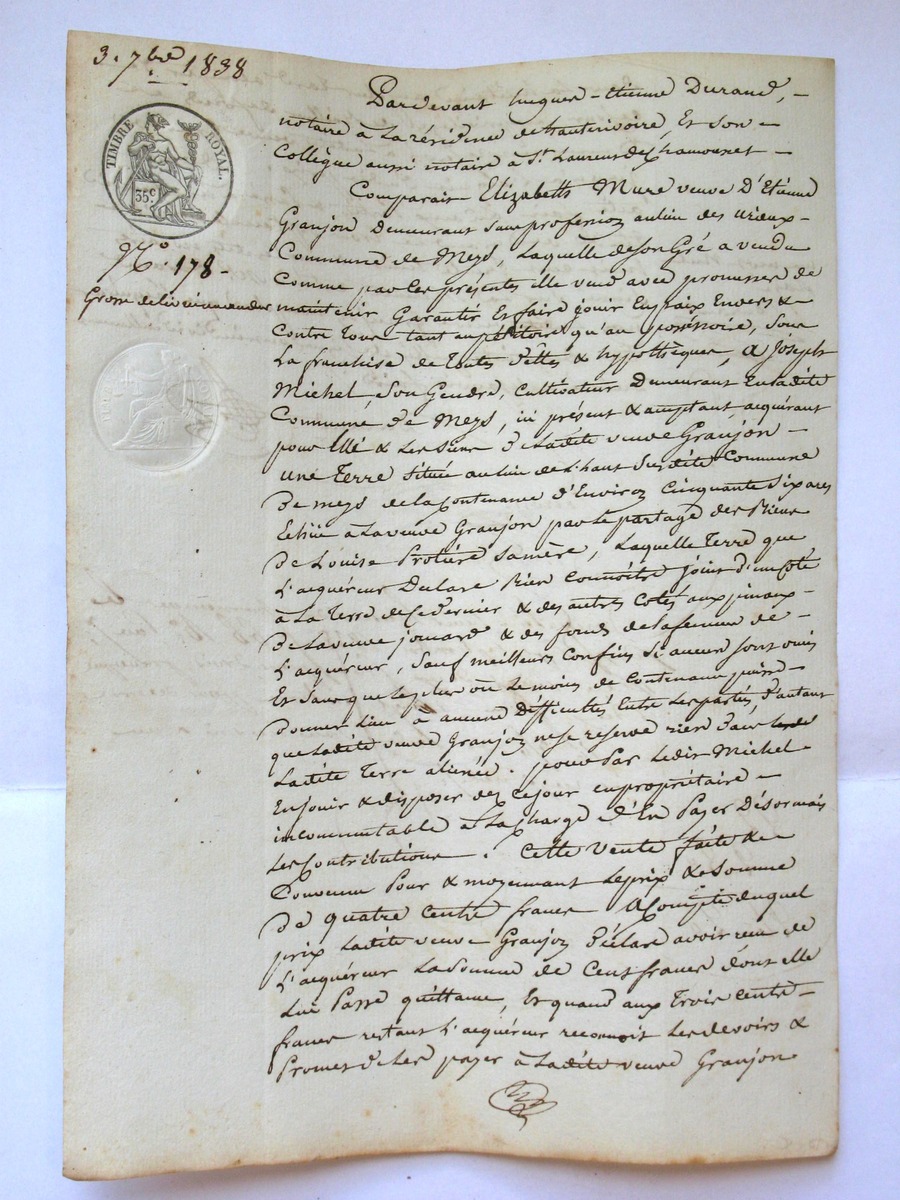 3. 7bre 1838
TIMBRE ROYAL.
35c
No. 178-
Grosse délivrée
Pardevant hugues-Etienne Durand,-
notaire à La résidence de hauterivoire, Et son-
Collègue aussi notaire à St. Laurent de Chamousset-
Comparait Elizabeth Mure veuve D'Etienne
Granjon Demeurant sans profession au lieu des
Commune de Meys, Laquelle de Son Gré a vendu
Comme par les présentes elle vend avec promesse de
maintenir Garantir Et faire jouir En paix Envers &
Contre Tous tant au pétitoire qu'au possessoire, Sous
La franchise de Toutes dettes & hypothèques, a joseph
Michel, Son Gendre, Cultivateur Demeurant En ladite
Commune de Meys, ici présent & acceptant, acquérant
pour & Les Siens De Ladite veuve Granjon-
une Terre Située au lieu de L'haut Susdite Commune
De meys de la Contenance d'Environ Cinquante Six ares
Echue à La veuve Granjon par Le partage des Biens
De Louise Protière Sa mère, Laquelle Terre que
L'acquéreur Déclare Bien Connoitre joint d'un Coté
à La Terre de Ce dernier & des autres Cotés aux
De La veuve jomard & des fonds de la femme de-
L'acquéreur, Sauf meilleurs Confins Si aucuns Sont
Et Sans que Le plus ou Le moins de Contenance puisse-
Donner Lieu à aucune Difficultés Entre Les parties, d'autant
que Ladite veuve Granjon ne se réserve rien Dans
Ladite Terre aliénée. pour Par Ledit Michel-
En jouir & disposer dès Ce jour en propriétaire-
incommutable à La Charge d'En Payer Désormais
Les Contributions. Cette Vente faite &-
Convenue Pour & moyennant Le prix & Somme
De quatre Cents francs. A Compte duquel
prix Ladite veuve Granjon Déclare avoir reçu de
L'acquéreur La Somme de Cent francs dont elle
Lui Passe quittance, Et quand aux Trois Cents-
francs restant L'acquéreur reconnoit Les devoirs &
Promet de Les payer à Ladite veuve Granjon